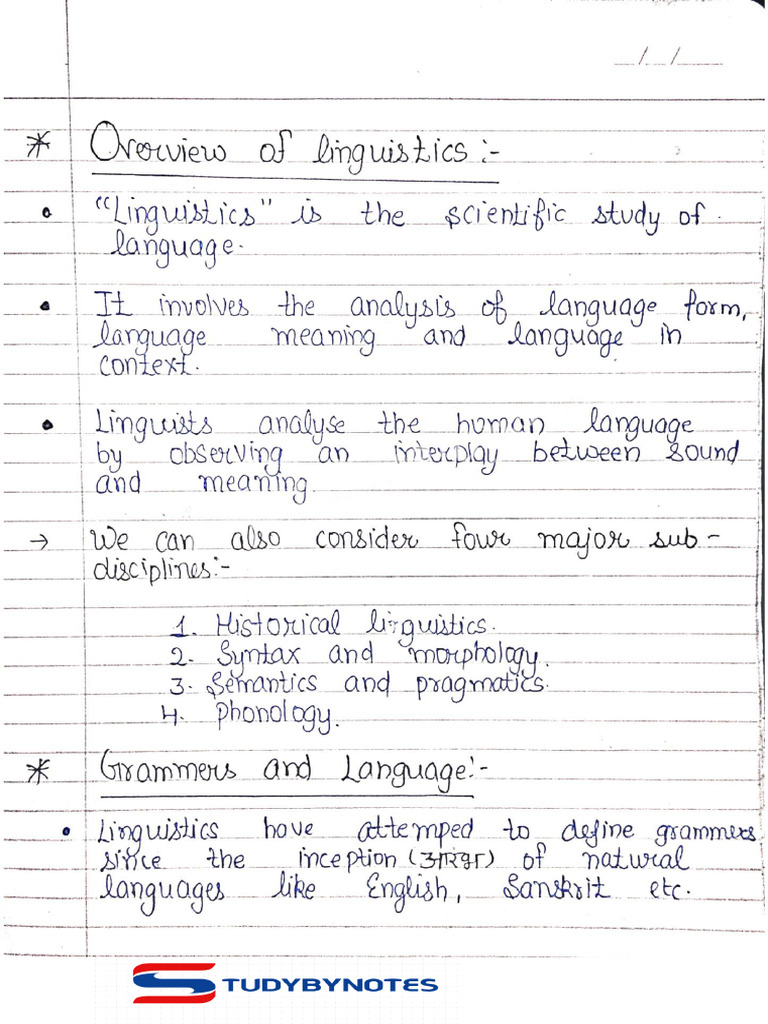 __/__/____
* Overview of linguistics:-
• "Linguistics" is the scientific study of
language.
• It involves the analysis of language form,
language meaning and language in
context.
• Linguists analyse the human language
by observing an interplay between sound
and meaning.
→ We can also consider four major sub-
disciplines:-
1. Historical linguistics.
2. Syntax and morphology.
3. Semantics and pragmatics.
4. Phonology.
* Grammers and Language:-
• Linguistics have attemped to define grammers
since the inception (आरंभ) of natural
languages like English, Sanskrit etc.
STUDYBYNOTES